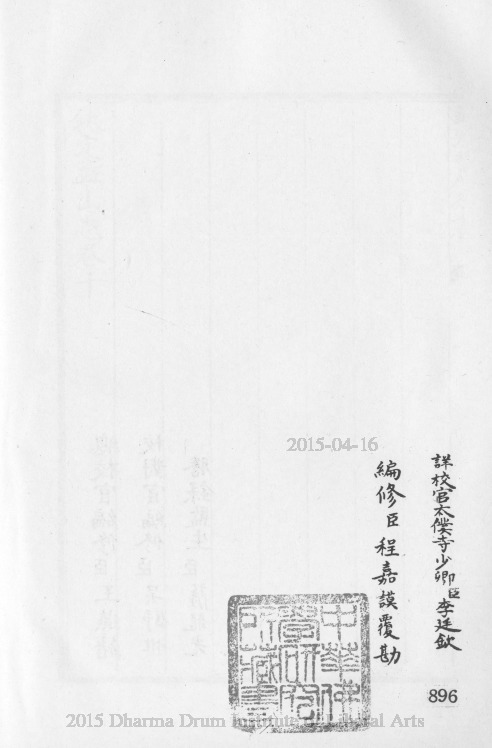 詳校官太僕寺少卿臣李廷欽
編修臣程嘉謨覆勘
中華佛
學研究
所藏書
896
2015-04-16
2015 Dharma Drum Institute of Liberal Arts